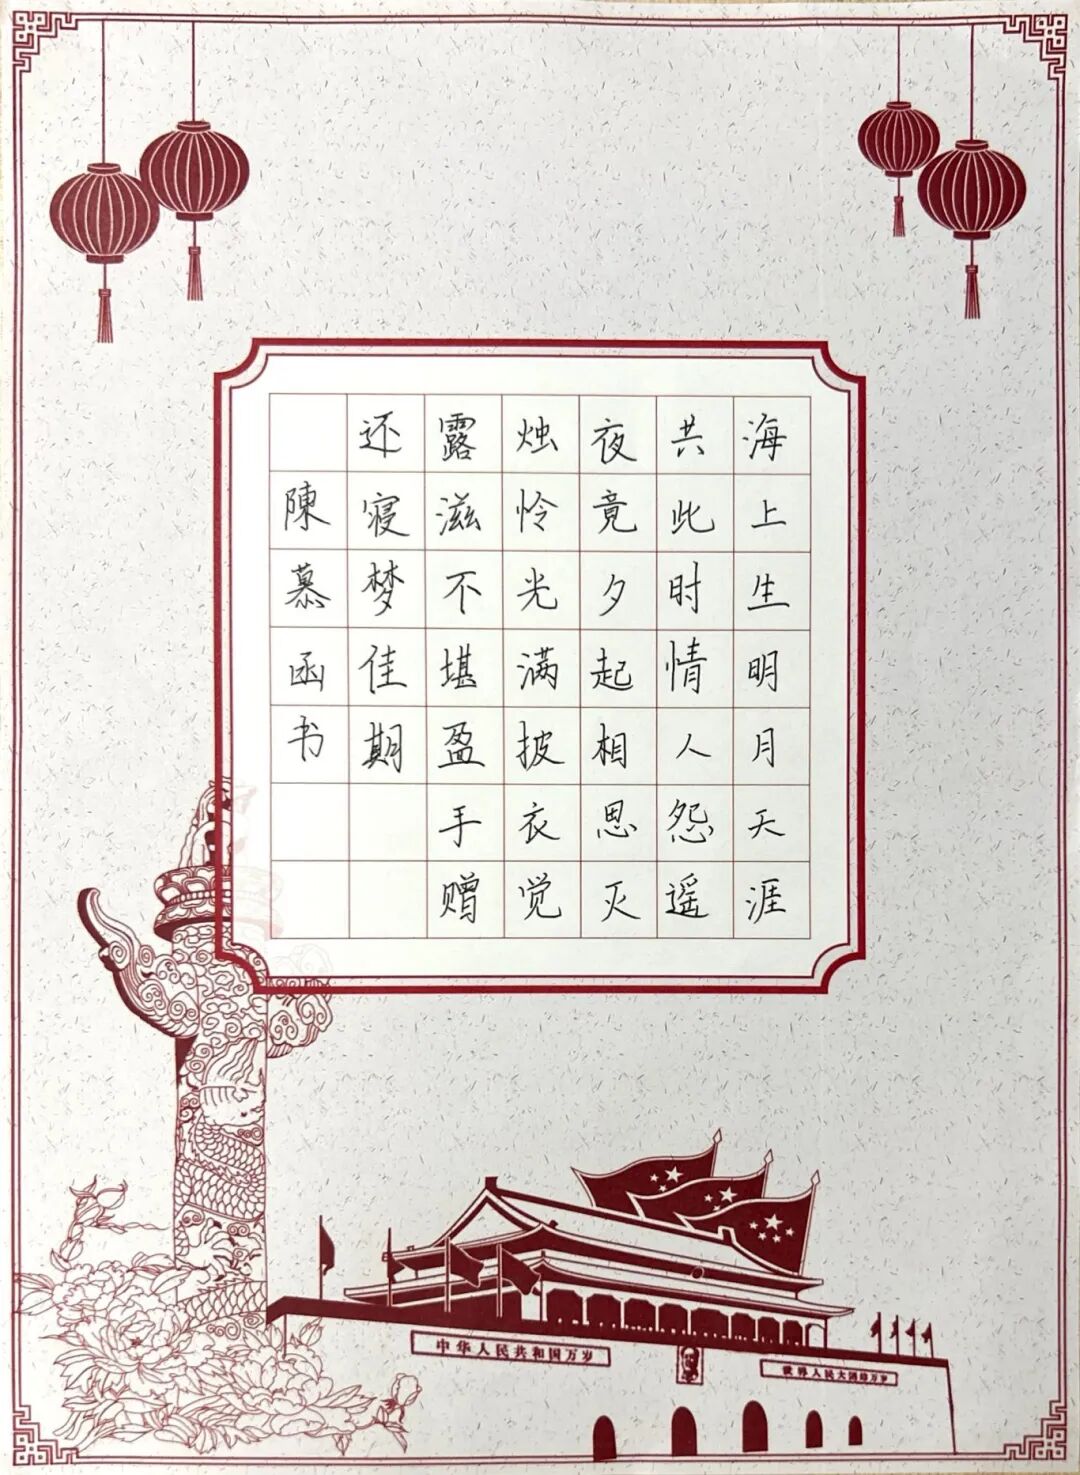 海上生明月天涯
共此时情人怨遥
夜竟夕起相思灭
烛怜光满披衣觉
露滋不堪盈手赠
还寝梦佳期
陳慕函书
中华人民共和国万岁
世界人民大团结万岁